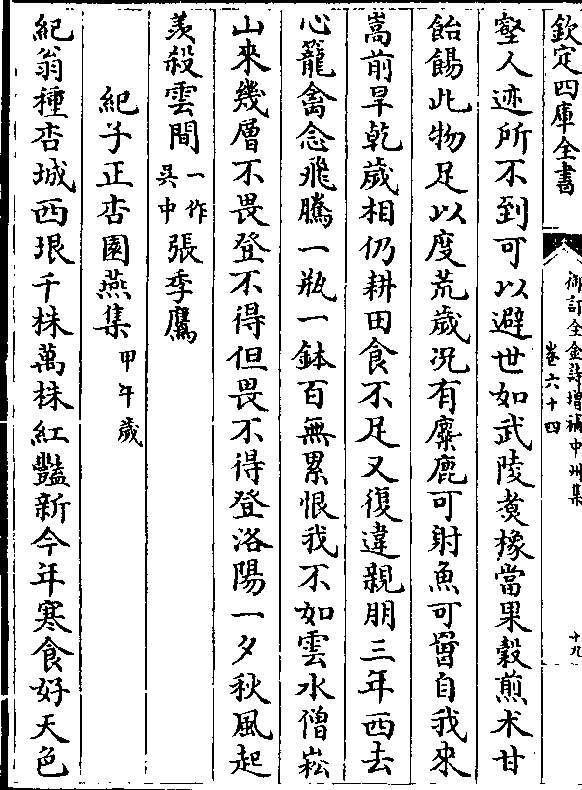 欽定四庫全書
御訂全金詩增補中州集
卷六十四
十九
壑人迹所不到可以避世如武陵煑橡當果穀煎术甘
飴餳此物足以度荒歲况有麋鹿可射魚可罾自我來
嵩前旱乾歲相仍耕田食不足又復違親朋三年西去
心籠禽念飛騰一瓶一鉢百無累恨我不如雲水僧崧
山來幾層不畏登不得但畏不得登洛陽一夕秋風起
羨殺雲間一作吳中張季鷹
紀子正杏園燕集甲午歲
紀翁種杏城西垠千株萬株紅豔新今年寒食好天色